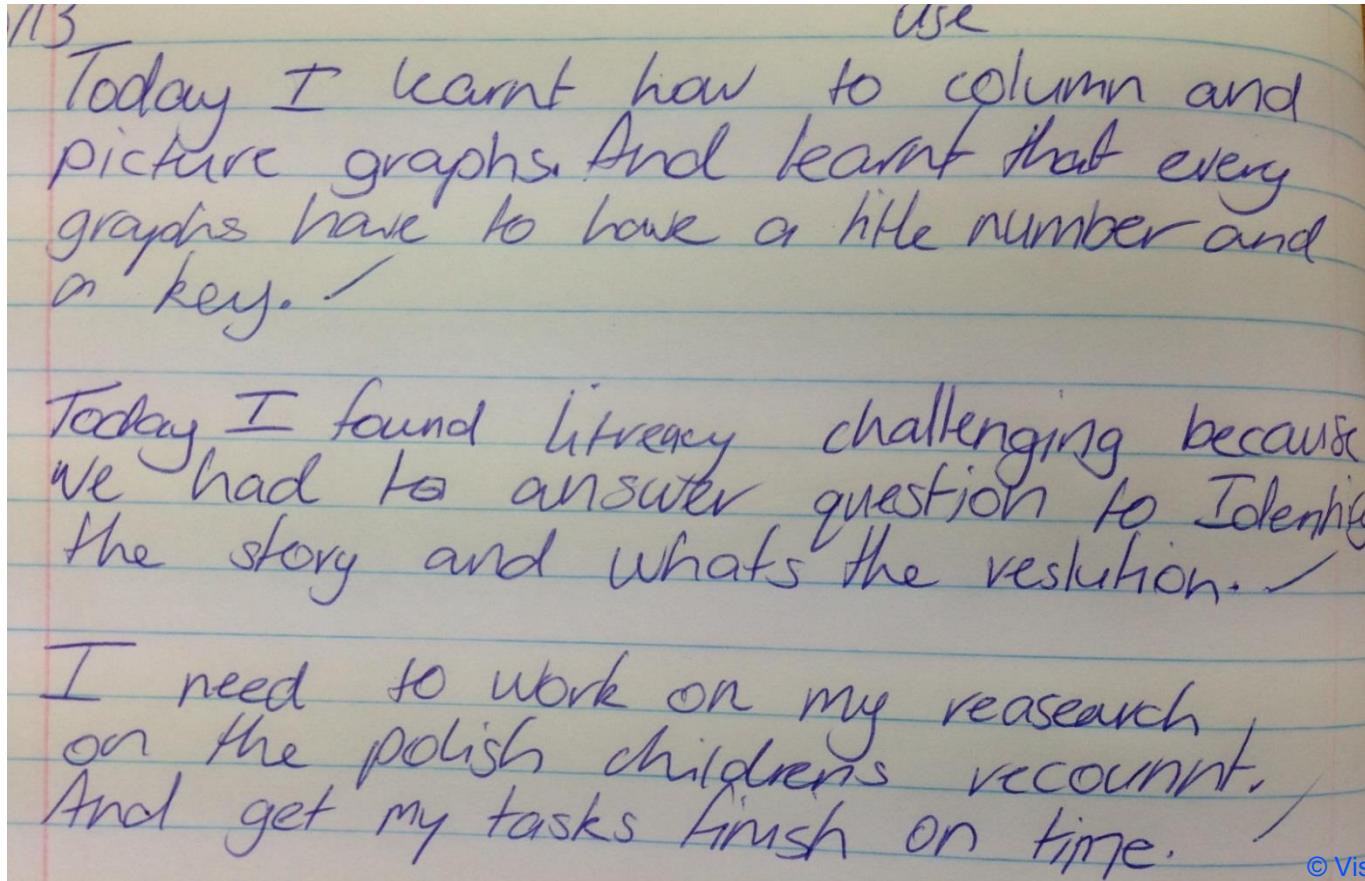 /13 use
Today I learnt how to column and
picture graphs. And learnt that every
graphs have to have a title number and
a key.
Today I found litreacy challenging because
we had to answer question to Identify
the story and whats the reslution.
I need to work on my reasearch
on the polish childrens recounnt.
And get my tasks finish on time.
© Vis